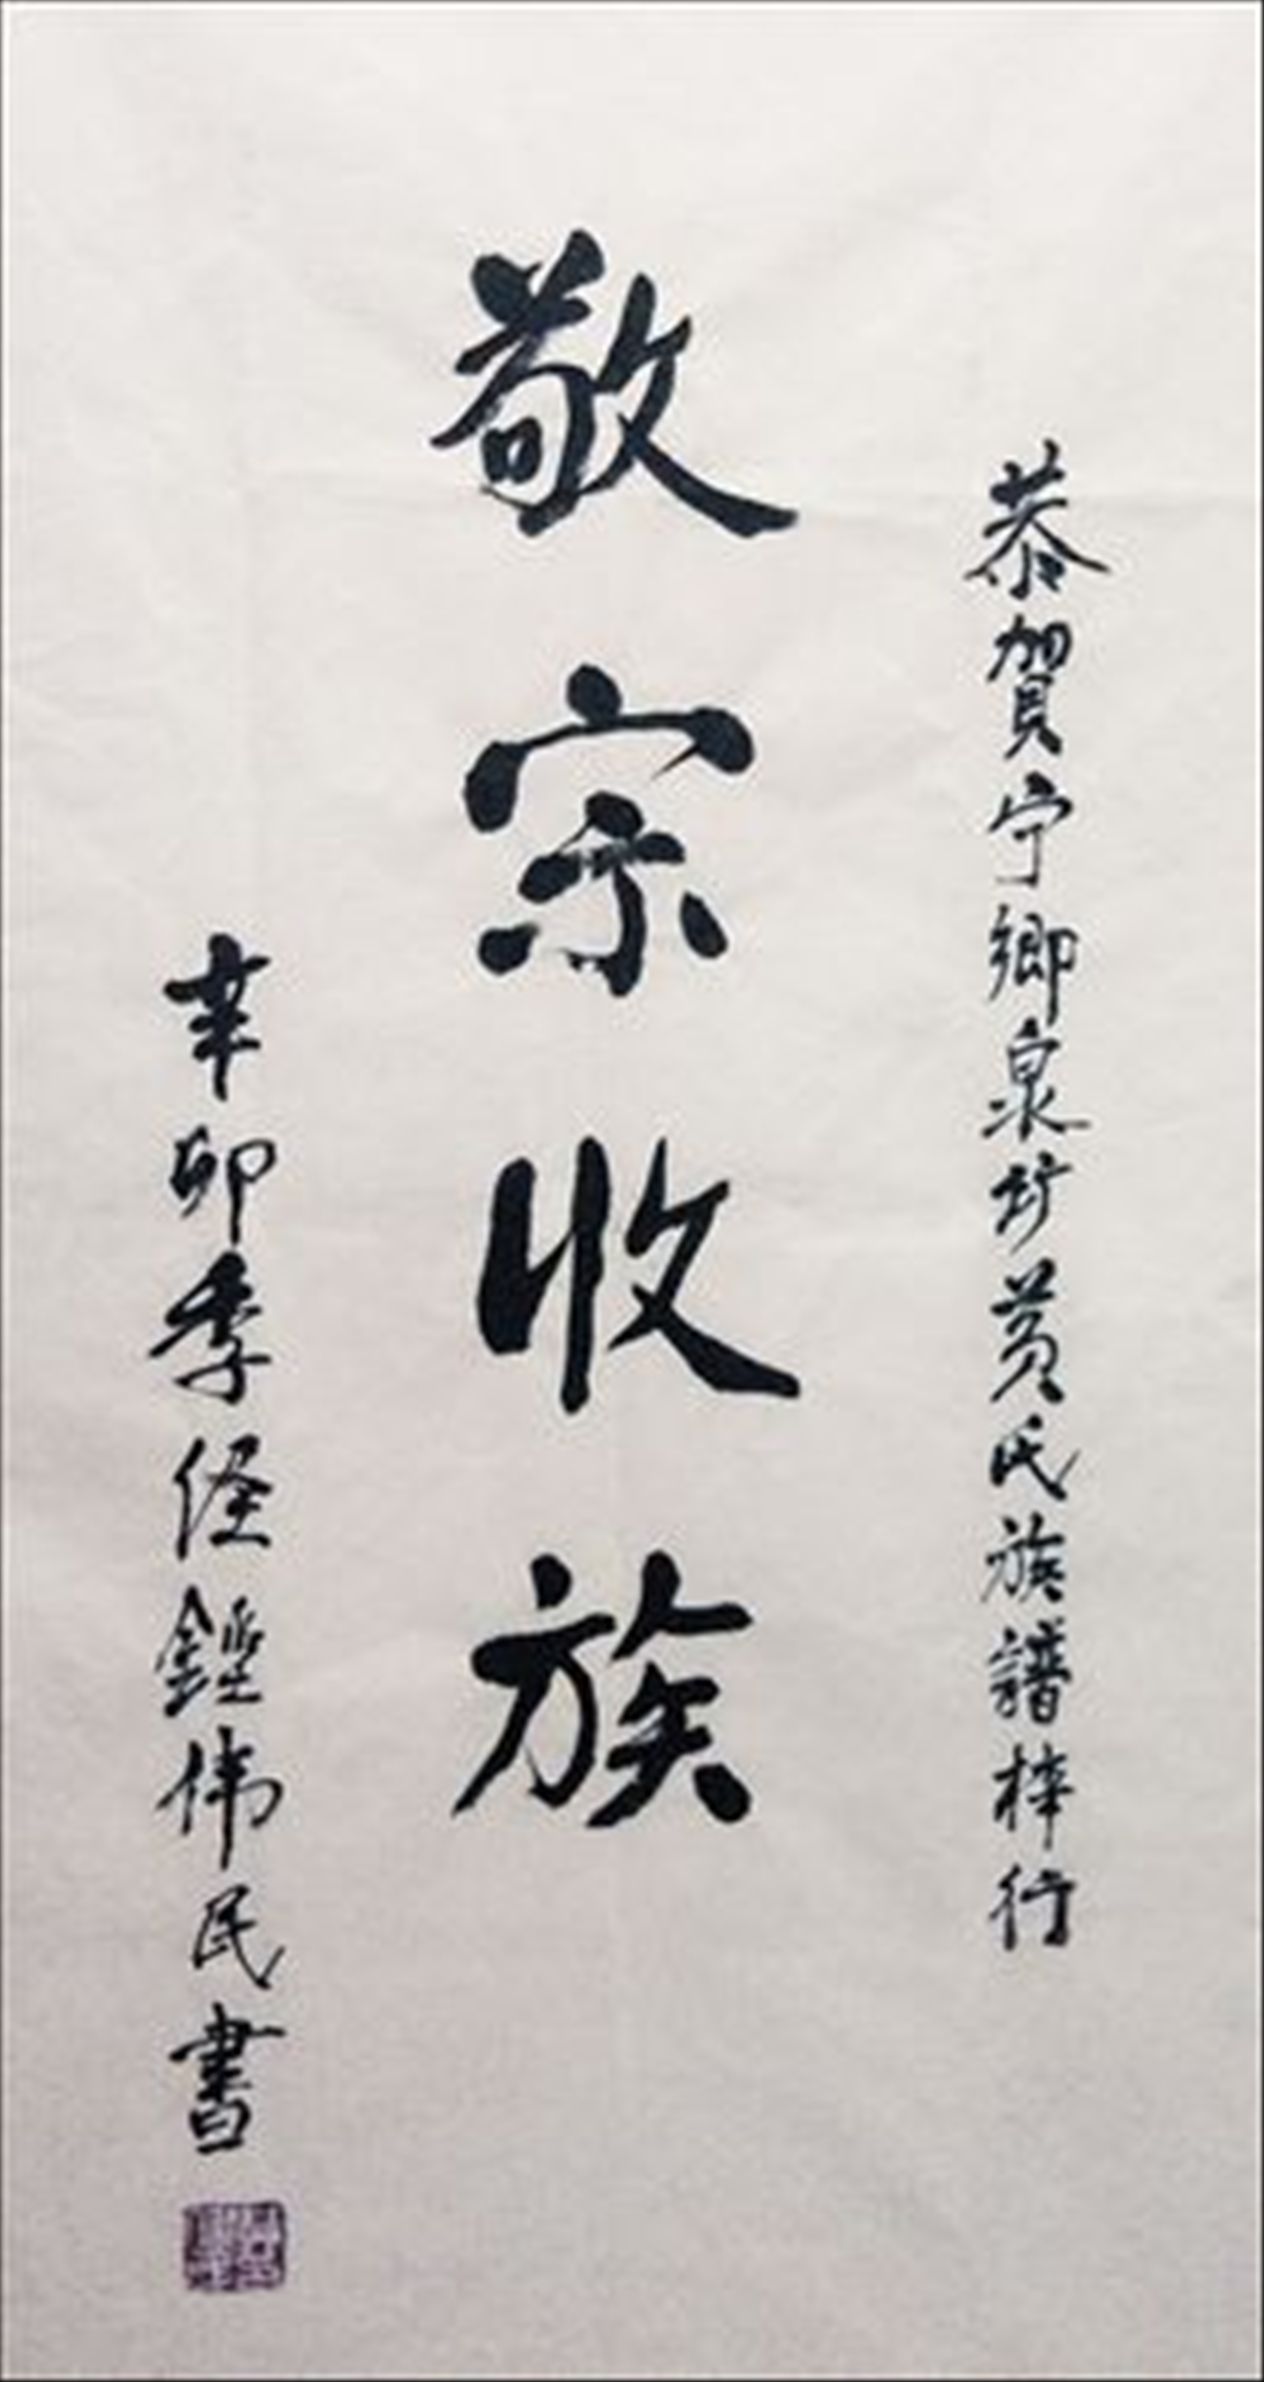 恭賀宁鄉泉圹黄氏族譜梓行
敬宗收族
辛卯季经鍾伟民書